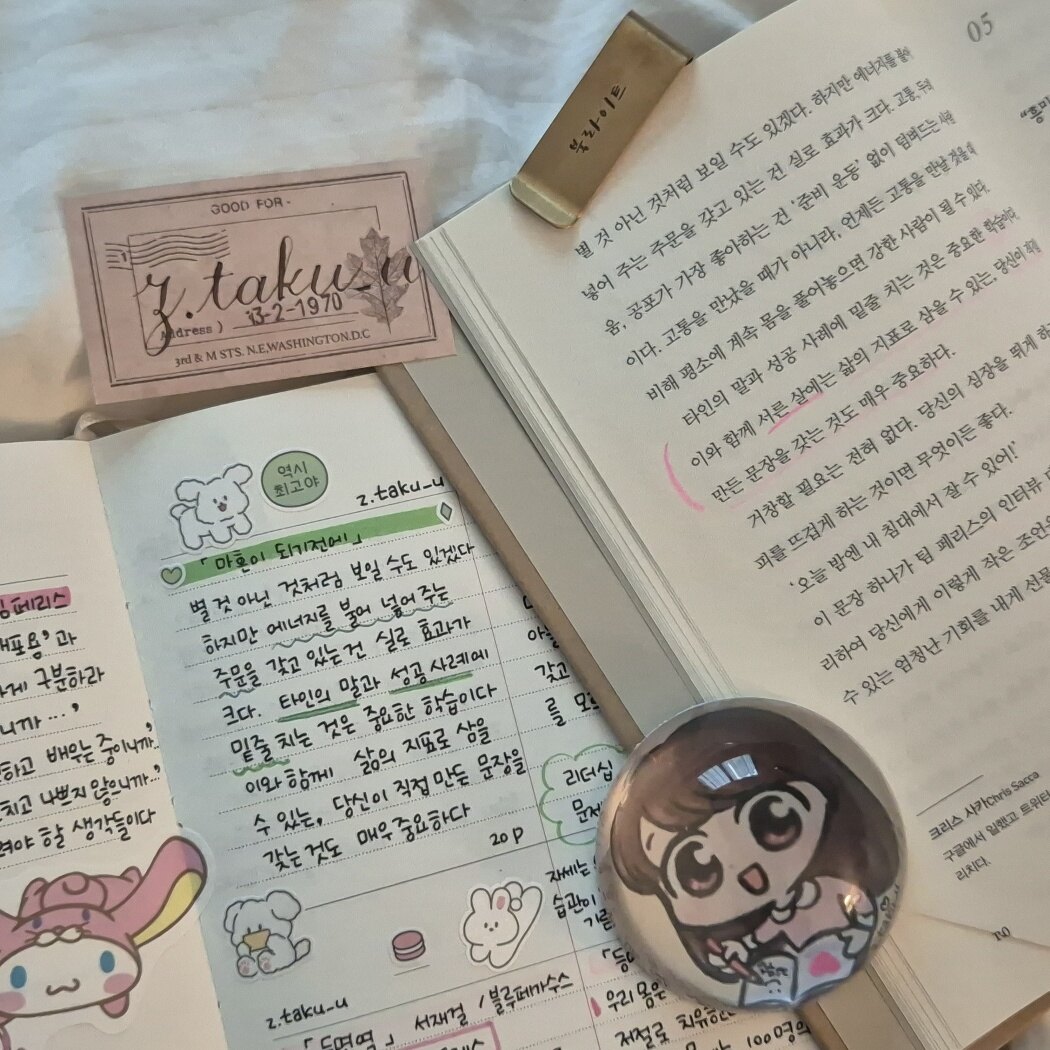 GOOD FOR -
z.taku_u
13-2-1970
Address )
3rd & M STS. N.E,WASHINGTON.D.C
북라이트
05
별 것 아닌 것처럼 보일 수도 있겠다. 하지만 에너지를 불어
넣어 주는 주문을 갖고 있는 건 실로 효과가 크다. 고통, 두려
움, 공포가 가장 좋아하는 건 ‘준비 운동’ 없이 덤벼드는
이다. 고통을 만났을 때가 아니라, 언제든 고통을 만날 것을
비해 평소에 계속 몸을 풀어놓으면 강한 사람이 될 수 있다.
타인의 말과 성공 사례에 밑줄 치는 것은 중요한 학습이다.
이와 함께 서른 살에는 삶의 지표로 삼을 수 있는, 당신이 직접
만든 문장을 갖는 것도 매우 중요하다.
거창할 필요는 전혀 없다. 당신의 심장을 뛰게 하
피를 뜨겁게 하는 것이면 무엇이든 좋다.
‘오늘 밤엔 내 침대에서 잘 수 있어!’
이 문장 하나가 팀 페리스의 인터뷰
리하여 당신에게 이렇게 작은 조언
수 있는 엄청난 기회를 내게 선물
크리스 사카Chris Sacca
구글에서 일했고 트위터
리치다.
“흥미
역시
최고야
z.taku_u
「마흔이 되기전에」
별 것 아닌 것처럼 보일 수도 있겠다
하지만 에너지를 불어 넣어 주는
주문을 갖고 있는건 실로 효과가
크다. 타인의 말과 성공 사례에
밑줄 치는 것은 중요한 학습이다
이와 함께 삶의 지표로 삼을
수 있는, 당신이 직접 만든 문장을
갖는것도 매우 중요하다
20p
페리스
과
게 구분하라
니까 ...’
하고 배우는 중이니까..’
치고 나쁘지 않으니까..’
려야 할 생각들이다
갖고
를 모
리더십
문제
자세는
습관이
z.taku_u
서재걸 / 블루페가수스
우리 몸은
저절로 치유
100명의